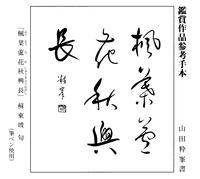 鑑賞作品参考手本
山田粋峯書
楓葉蘆
花秋興
長
「楓葉蘆花秋興長」蘇東坡 句
(筆ペン使用)